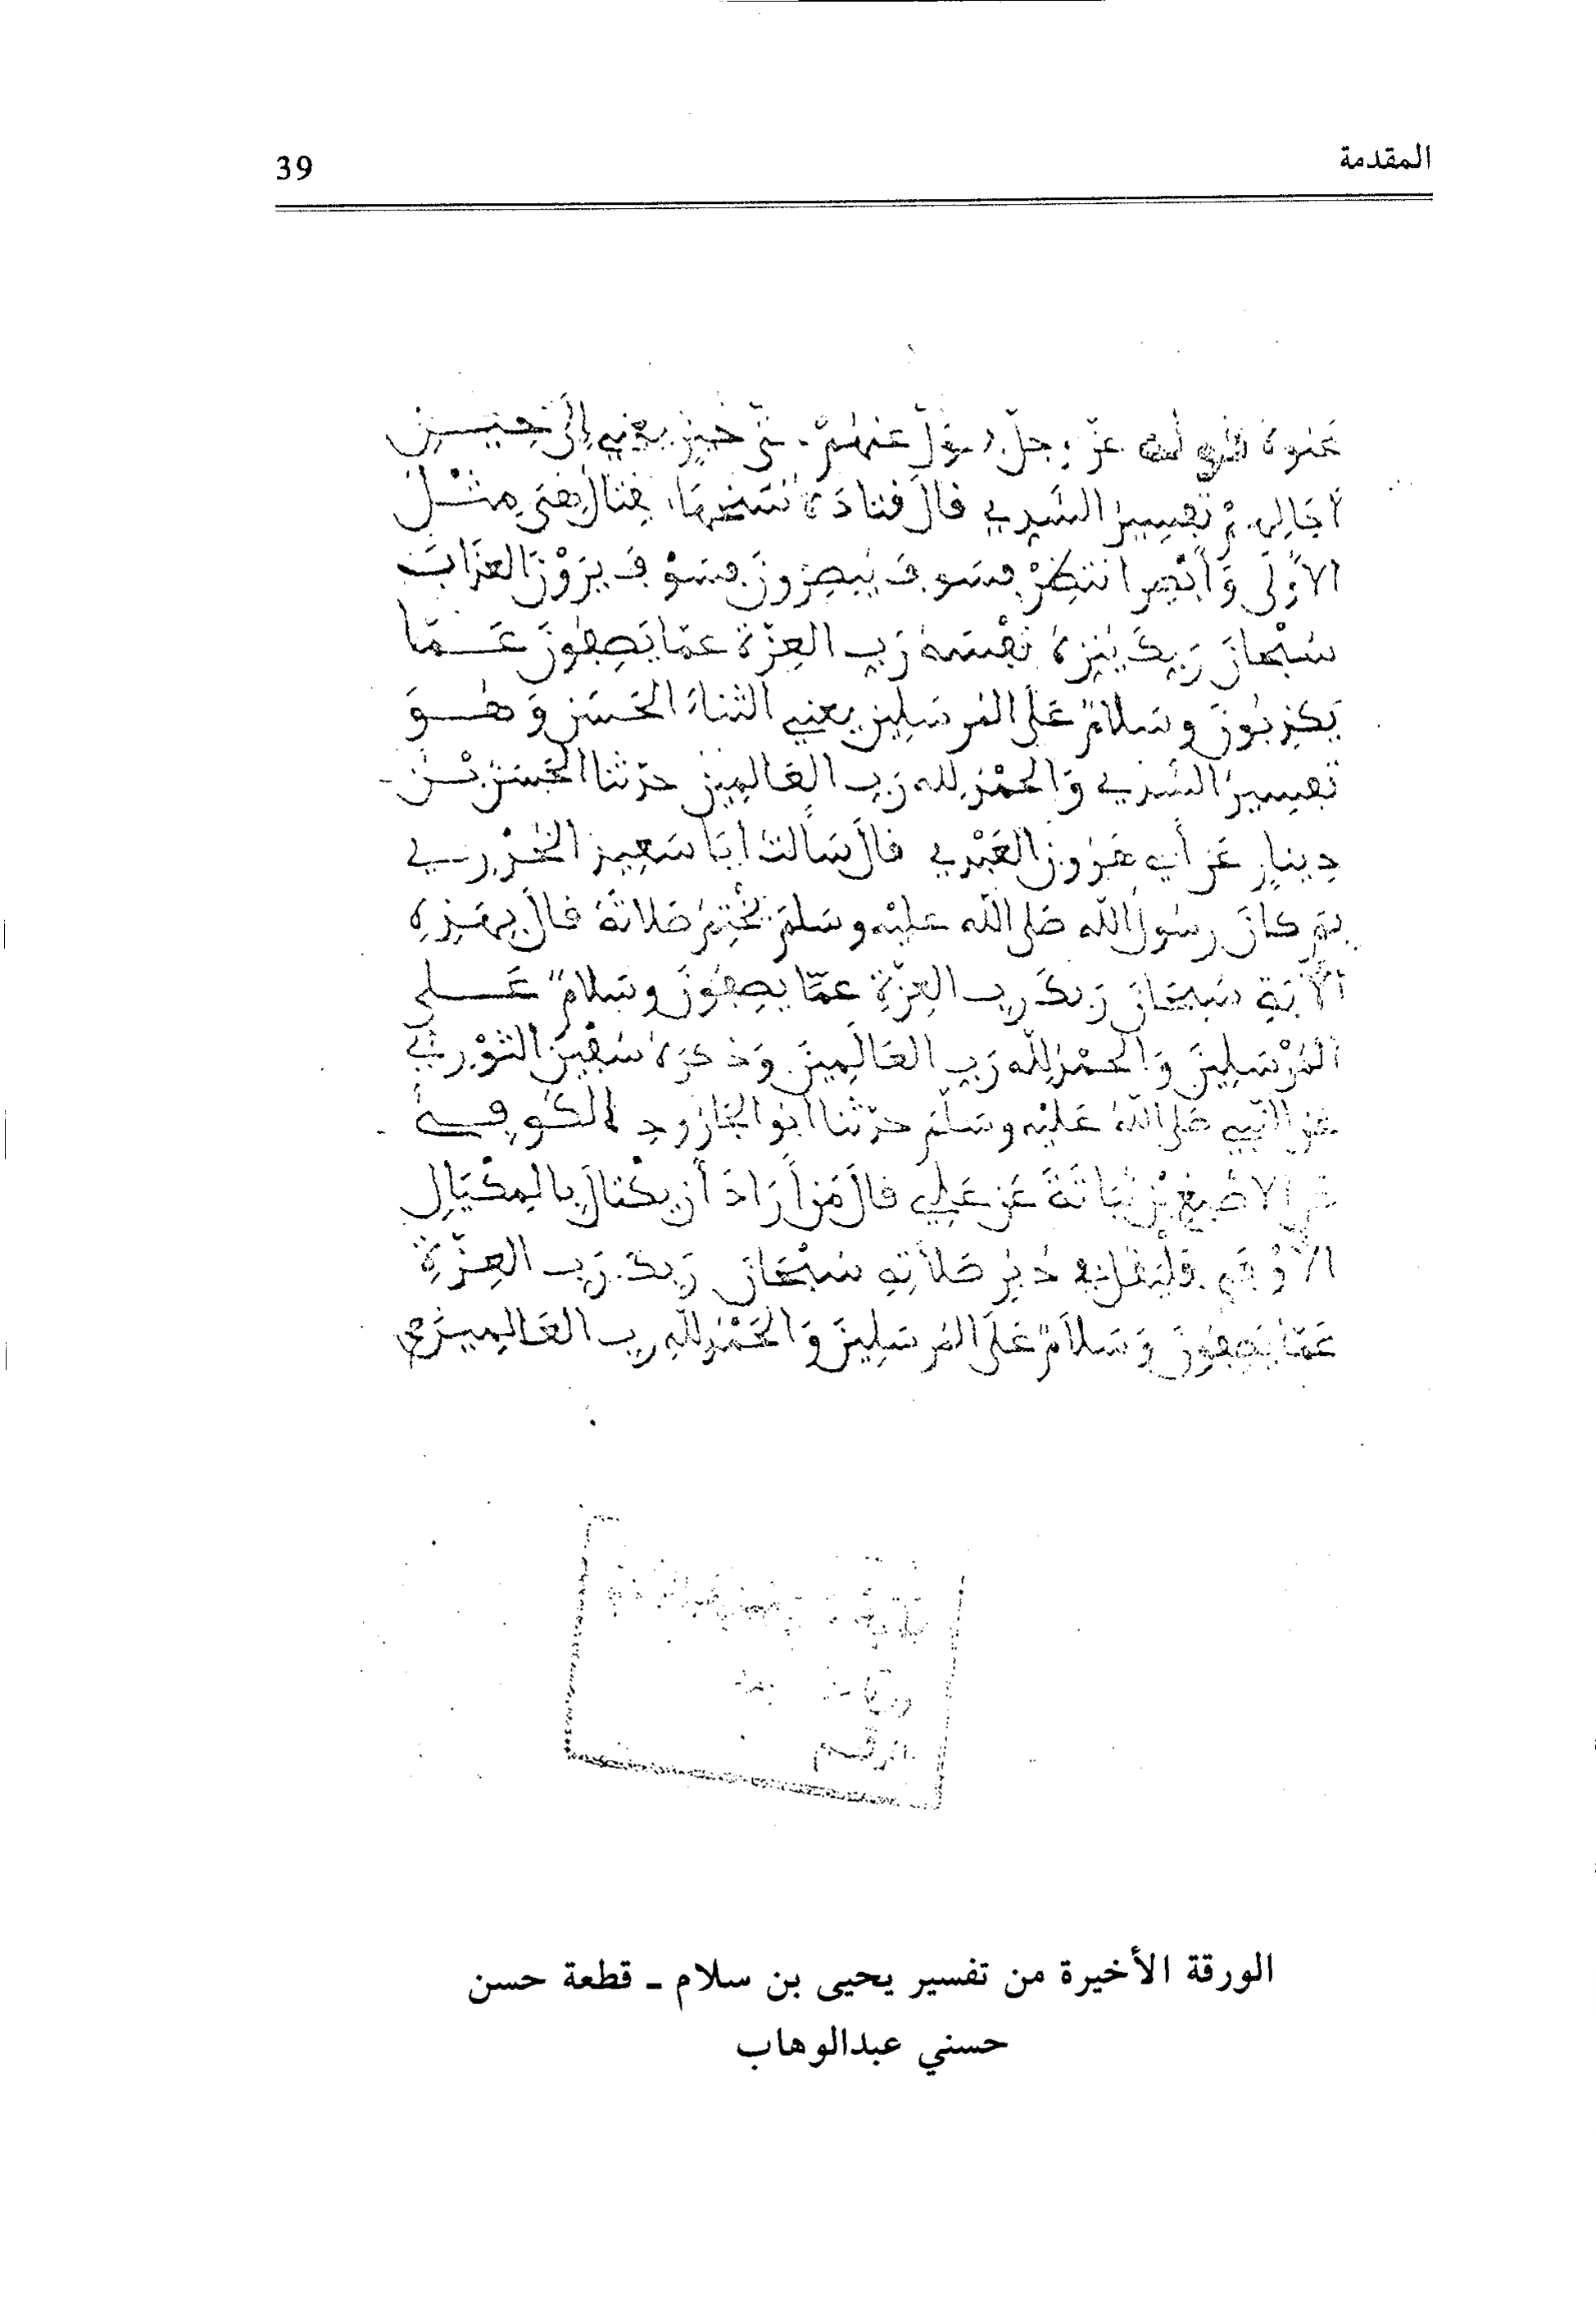 المقدمة
39
عنوة قوله عز وجل فتول عنهم حتى حين يعني إلى حين
آجالهم تفسير السدي قال قتادة نسختها القتال فهي مثل
الأولى وأبصر انتظر فسوف يبصرون فسوف يرون العذاب
سبحان ربك ينزه نفسه رب العزة عما يصفون عما
يكذبون وسلام على المرسلين يعني الثناء الحسن وهو
تفسير السدي والحمد لله رب العالمين حدثنا الحسن بن
دينار عن أبي هرون العبدي قال سألت أبا سعيد الخدري
بم كان رسول الله صلى الله عليه وسلم يختم صلاته قال بهذه
الآية سبحان ربك رب العزة عما يصفون وسلام على
المرسلين والحمد لله رب العالمين وذكره سفين الثوري
عن النبي صلى الله عليه وسلم حدثنا أبو الجارود الكوفي
عن الأصبغ بن نباتة عن علي قال من أراد أن يكتال بالمكيال
الأوفى فليقل في دبر صلاته سبحان ربك رب العزة
عما يصفون وسلام على المرسلين والحمد لله رب العالمين
الرقم
الورقة الأخيرة من تفسير يحيى بن سلام - قطعة حسن
حسني عبدالوهاب